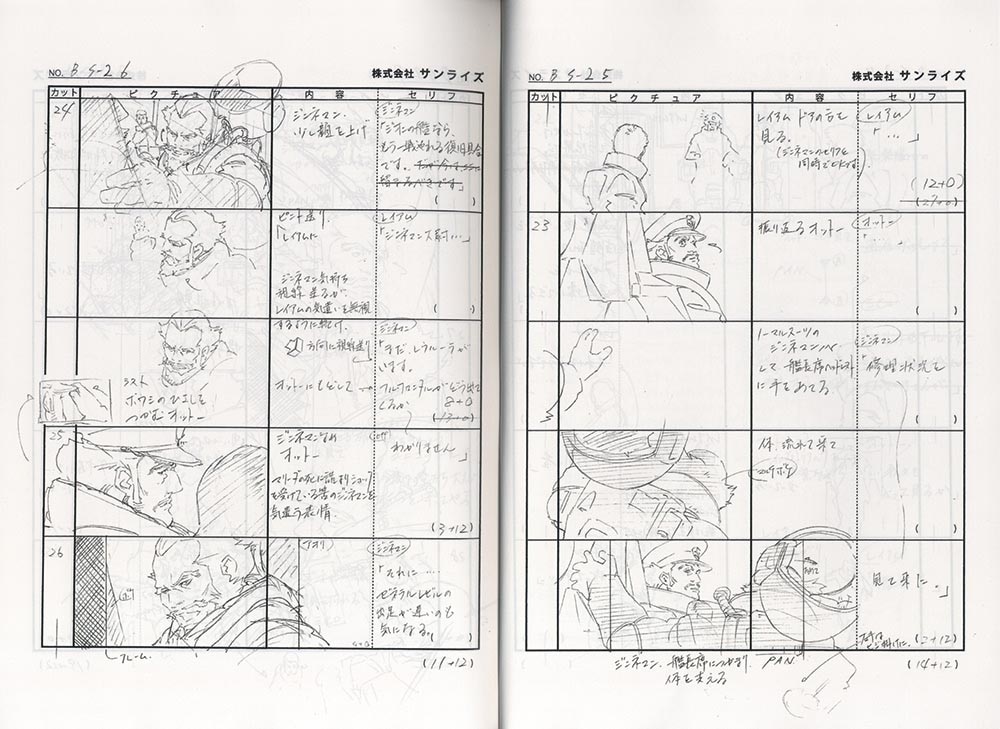 NO. B S-26
株式会社 サンライズ
カット
ピクチュア
内容
セリフ
24
ジンネマン
少し顔を上げ
ジンネマン
「ジオンの艦なら、
もう一戦やれる復旧具合
です。
( )
ピント送り、
「レイアムに
レイアム
「ジンネマン大尉…」
ジンネマン気持ち
視線送るが、
レイアムの気遣いを無視
するように続け、
( )
方向に視線送り
オットーにもどして→
ジンネマン
「まだ、レウルーラが
います。
フルフロンタルがどう出て
くるか
8+0
(13+0)
ラスト
ボウシのひさしを
つかむオットー
25
ジンネマンなめ
オットー
わかりません」
マリーダの死に誰よりショック
を受けている筈のジンネマンを
気遣う表情
(3+12)
26
(アオリ)
ジンネマン
「それに……
ゼネラルレビルの
出足が遅いのも
気になる。
( )
フレーム
(11+12)
NO. B S-25
株式会社 サンライズ
カット
ピクチュア
内容
セリフ
レイアム ドアの方を
見る。
(ジンネマンのセリフと
同時でヒトです)
レイアム
「…」
(12+0)
23
振り返るオットー
オットー
「
( )
ノーマルスーツの
ジンネマンIN
して、艦長席ヘッドレスト
に手をあてる
ジンネマン
「修理状況を
( )
体、流れて来て
( )
見て来た。」
(2+12)
ジンネマン、艦長席につかまり、
体を支える
PAN
(14+12)